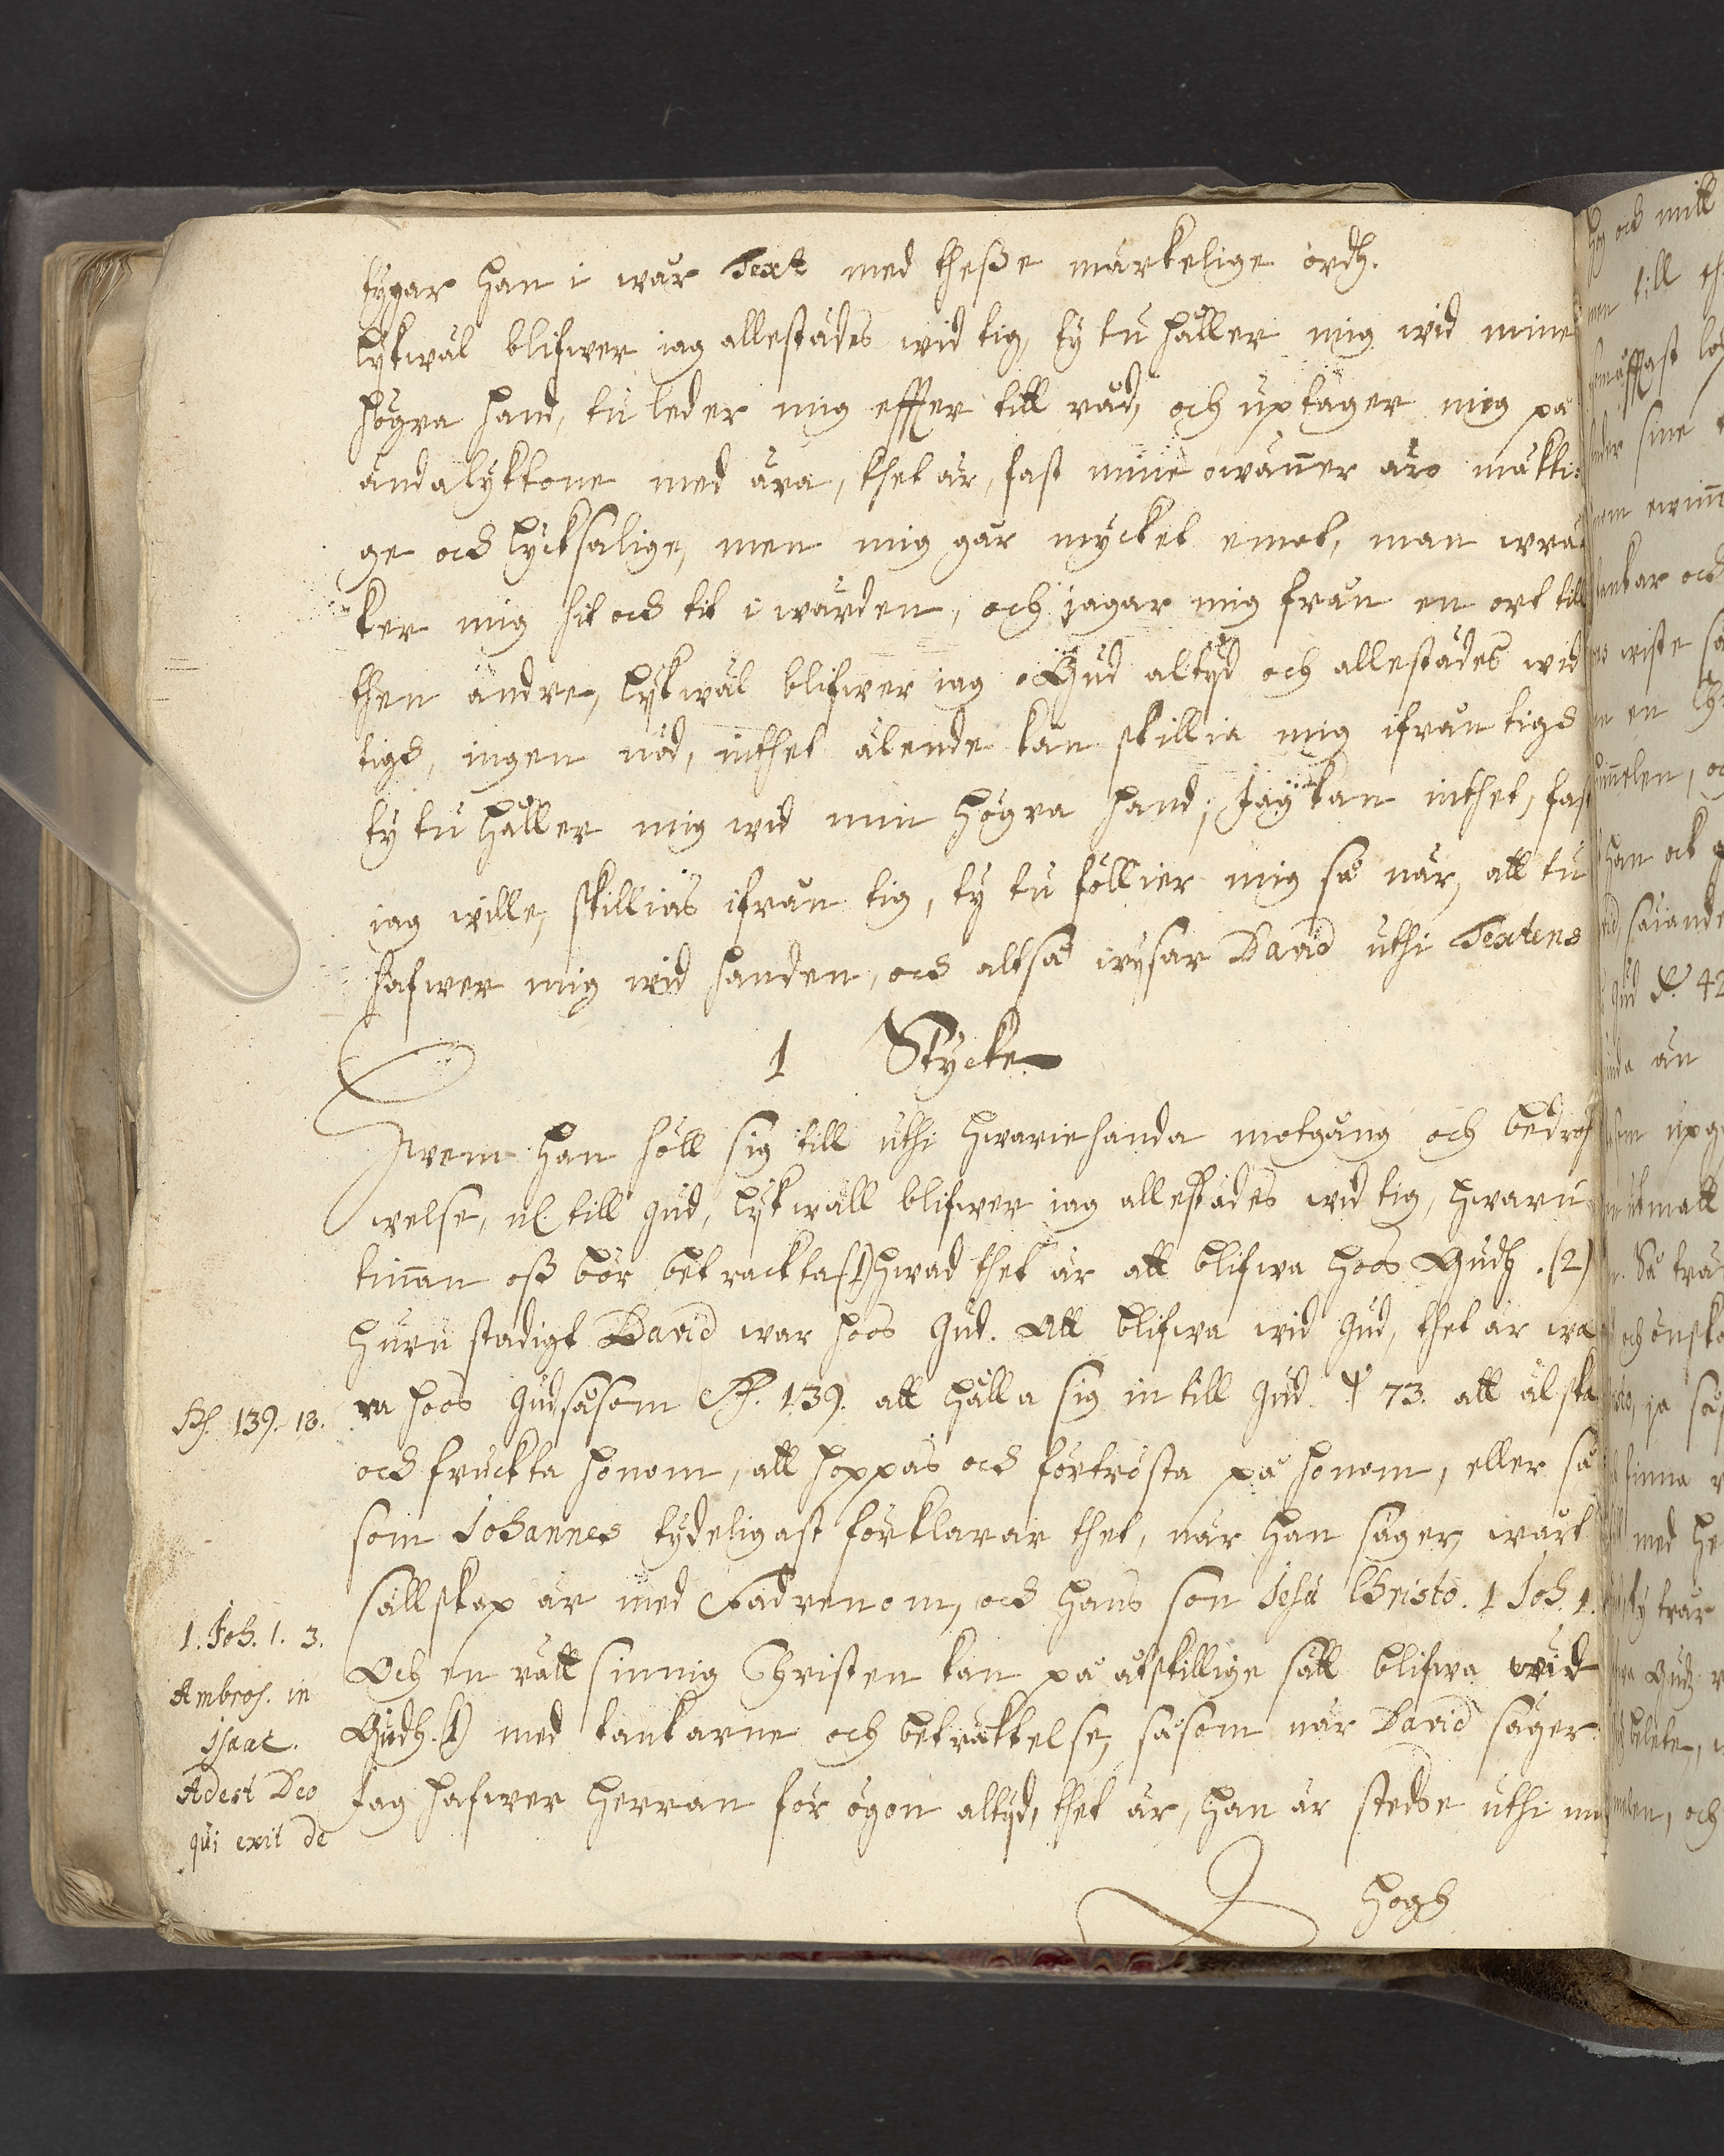 tygar han i wår Text med theße märkelige ordh.
lÿkwäl blifwer iag allestädes wid tig, ty tu håller mig wid mine
högra hand, tu leder mig effter titt råd, och uptager mig på
ändalÿktone med ära, thet är, fast mine owänner äro mäkti:
ge och lÿcksalige, men mig går mÿcket emot, man wrä
ker mig hit och tit i wärden, och jagar mig från en ort till
then andre, lÿkwäl blifwer iag o Gud altÿd och allestädes wid
tigh, ingen nöd, inthet älende kan skillia mig ifrån tigh
tÿ tu håller mig wid min högra hand, Jag kan inthet, fast
iag wille, skillias ifrån tig, tÿ tu föllier mig så när, att tu
hafwer mig wid handen, och altså wÿsar David uthi Textens
1 Stÿcke
Hwem han höll sig till uthi hwariehanda motgång och bedröf
welse, nl. till Gud, lÿkwäll blifwer iag allestädes wid tig, hwaru
tinnan oß bör betrachta (1) hwad thet är att blifwa hoos Gudh. (2)
huru stadigt David war hoos Gud. Att blifwa wid Gud, thet är wa
ra hoos Gud såsom Ps. 139. att hålla sig in till Gud Ps 73. att älska
och fruckta honom, att hoppas och förtrösta på honom, eller så
som Johannes tÿdeligast förklarar thet, när han säger, wårt
sällskap är med Fadrenom, och hans son Jesu Christo. 1 Joh. 1.
Och en rättsinnig Christen kan på åtskillige sätt blifwa wid
Gudh. (1) med tankarne och beträktelse, såsom när David säger
Jag hafwer Herran för ögon altÿd, thet är, han är stedse uthi min
hogh
Ps. 139. 18.
1. Joh. 1. 3.
Ambros. in
Isaac.
Adest Deo
qui exit de